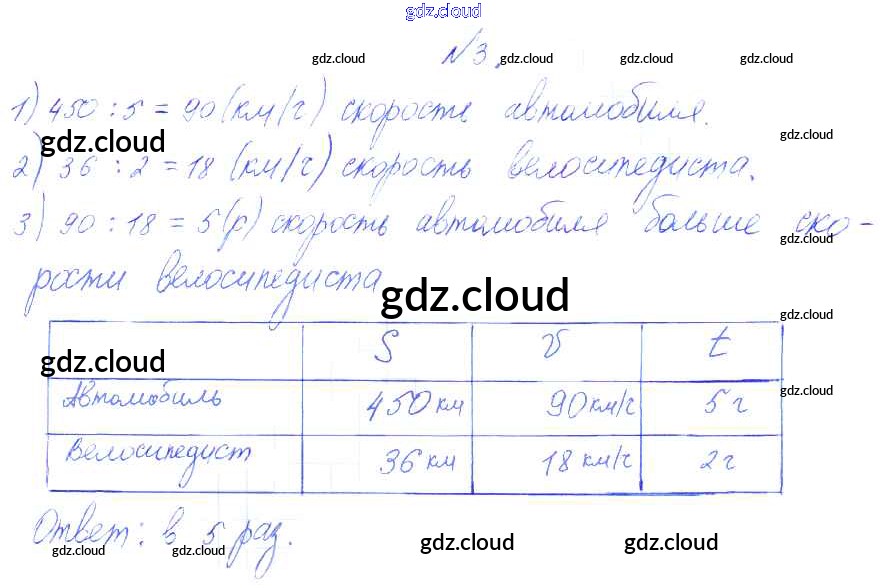 gdz.cloud
№3.
gdz.cloud gdz.cloud gdz.cloud gdz.cloud
1) 450 : 5 = 90 (км/ч) скорость автомобиля.
gdz.cloud gdz.cloud
2) 36 : 2 = 18 (км/ч) скорость велосипедиста.
3) 90 : 18 = 5 (р) скорость автомобиля больше ско-
gdz.cloud
рости велосипедиста
gdz.cloud gdz.cloud
S v t
gdz.cloud
Автомобиль 450 км 90 км/ч 5 ч
gdz.cloud
Велосипедист 36 км 18 км/ч 2 ч
Ответ: в 5 раз.
gdz.cloud gdz.cloud gdz.cloud gdz.cloud